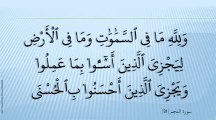 وَلِلَّهِ مَا فِي السَّمَٰوَٰتِ وَمَا فِي الْأَرْضِ
لِيَجْزِيَ الَّذِينَ أَسَٰٓـُٔوا بِمَا عَمِلُوا
وَيَجْزِيَ الَّذِينَ أَحْسَنُوا بِالْحُسْنَى
سورة النجم